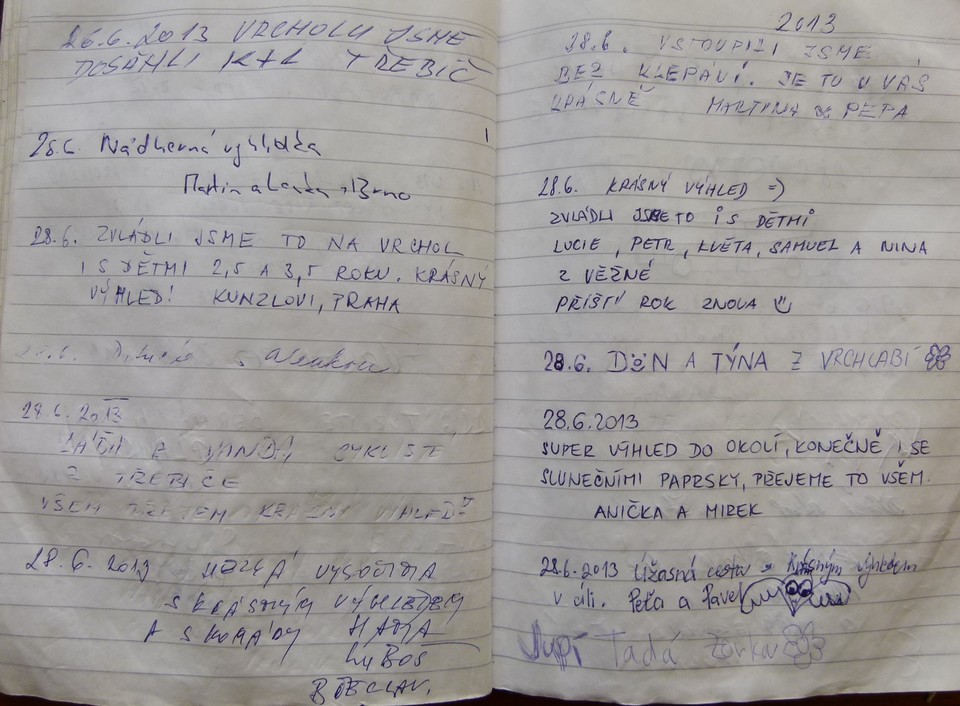 26.6.2013 VRCHOLU JSME
DOSÁHLI K+L TŘEBÍČ
28.6. Nádherná vyhlídka
Martin a Lenka, Brno
28.6. ZVLÁDLI JSME TO NA VRCHOL
I S DĚTMI 2,5 A 3,5 ROKU. KRÁSNÝ
VÝHLED! KUNZLOVI, PRAHA
28.6. 2013
CYKLISTÉ
Z TŘEBÍČE
VŠEM PŘEJEM KRÁSNÝ VÝHLED
28.6. 2013 HEZKÁ VYSOČINA
S KRÁSNÝM VÝHLEDEM
A S KOMÁRY HANA
LUBOŠ
BŘECLAV.
2013
28.6. VSTOUPILI JSME
BEZ KLEPÁNÍ. JE TO U VÁS
KRÁSNĚ MARTINA & PEPA
28.6. KRÁSNÝ VÝHLED =)
ZVLÁDLI JSME TO I S DĚTMI
LUCIE, PETR, KVĚTA, SAMUEL A NINA
Z VĚŽNÉ
PŘÍŠTÍ ROK ZNOVA
28.6. DAN A TÝNA Z VRCHLABÍ
28.6.2013
SUPER VÝHLED DO OKOLÍ, KONEČNĚ I SE
SLUNEČNÍMI PAPRSKY, PŘEJEME TO VŠEM.
ANIČKA A MIREK
28.6.2013 Úžasná cesta s krásným výhledem
v cíli. Peťa a Pavel
Tadá Zorka